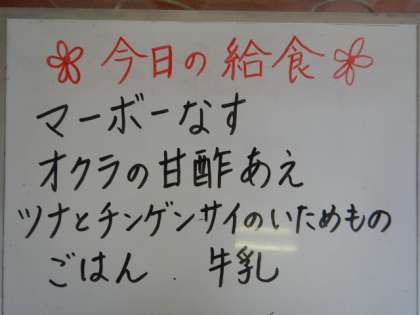 今日の給食
マーボーなす
オクラの甘酢あえ
ツナとチンゲンサイのいためもの
ごはん . 牛乳